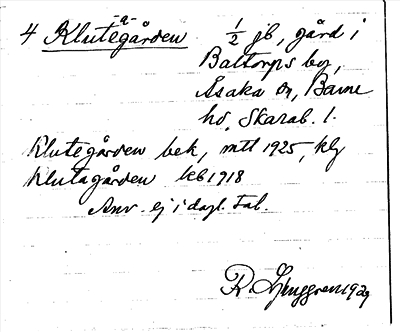 -a-
4 Klutegården 1/2 jb, gård i
Baltorps by,
Åsaka sn, Barne
hd, Skarab. l.
Klutegården bek, mtl 1925, klg
Klutagården kb 1918
Anv. ej i dagl. tal.
R. Ljunggren 1929